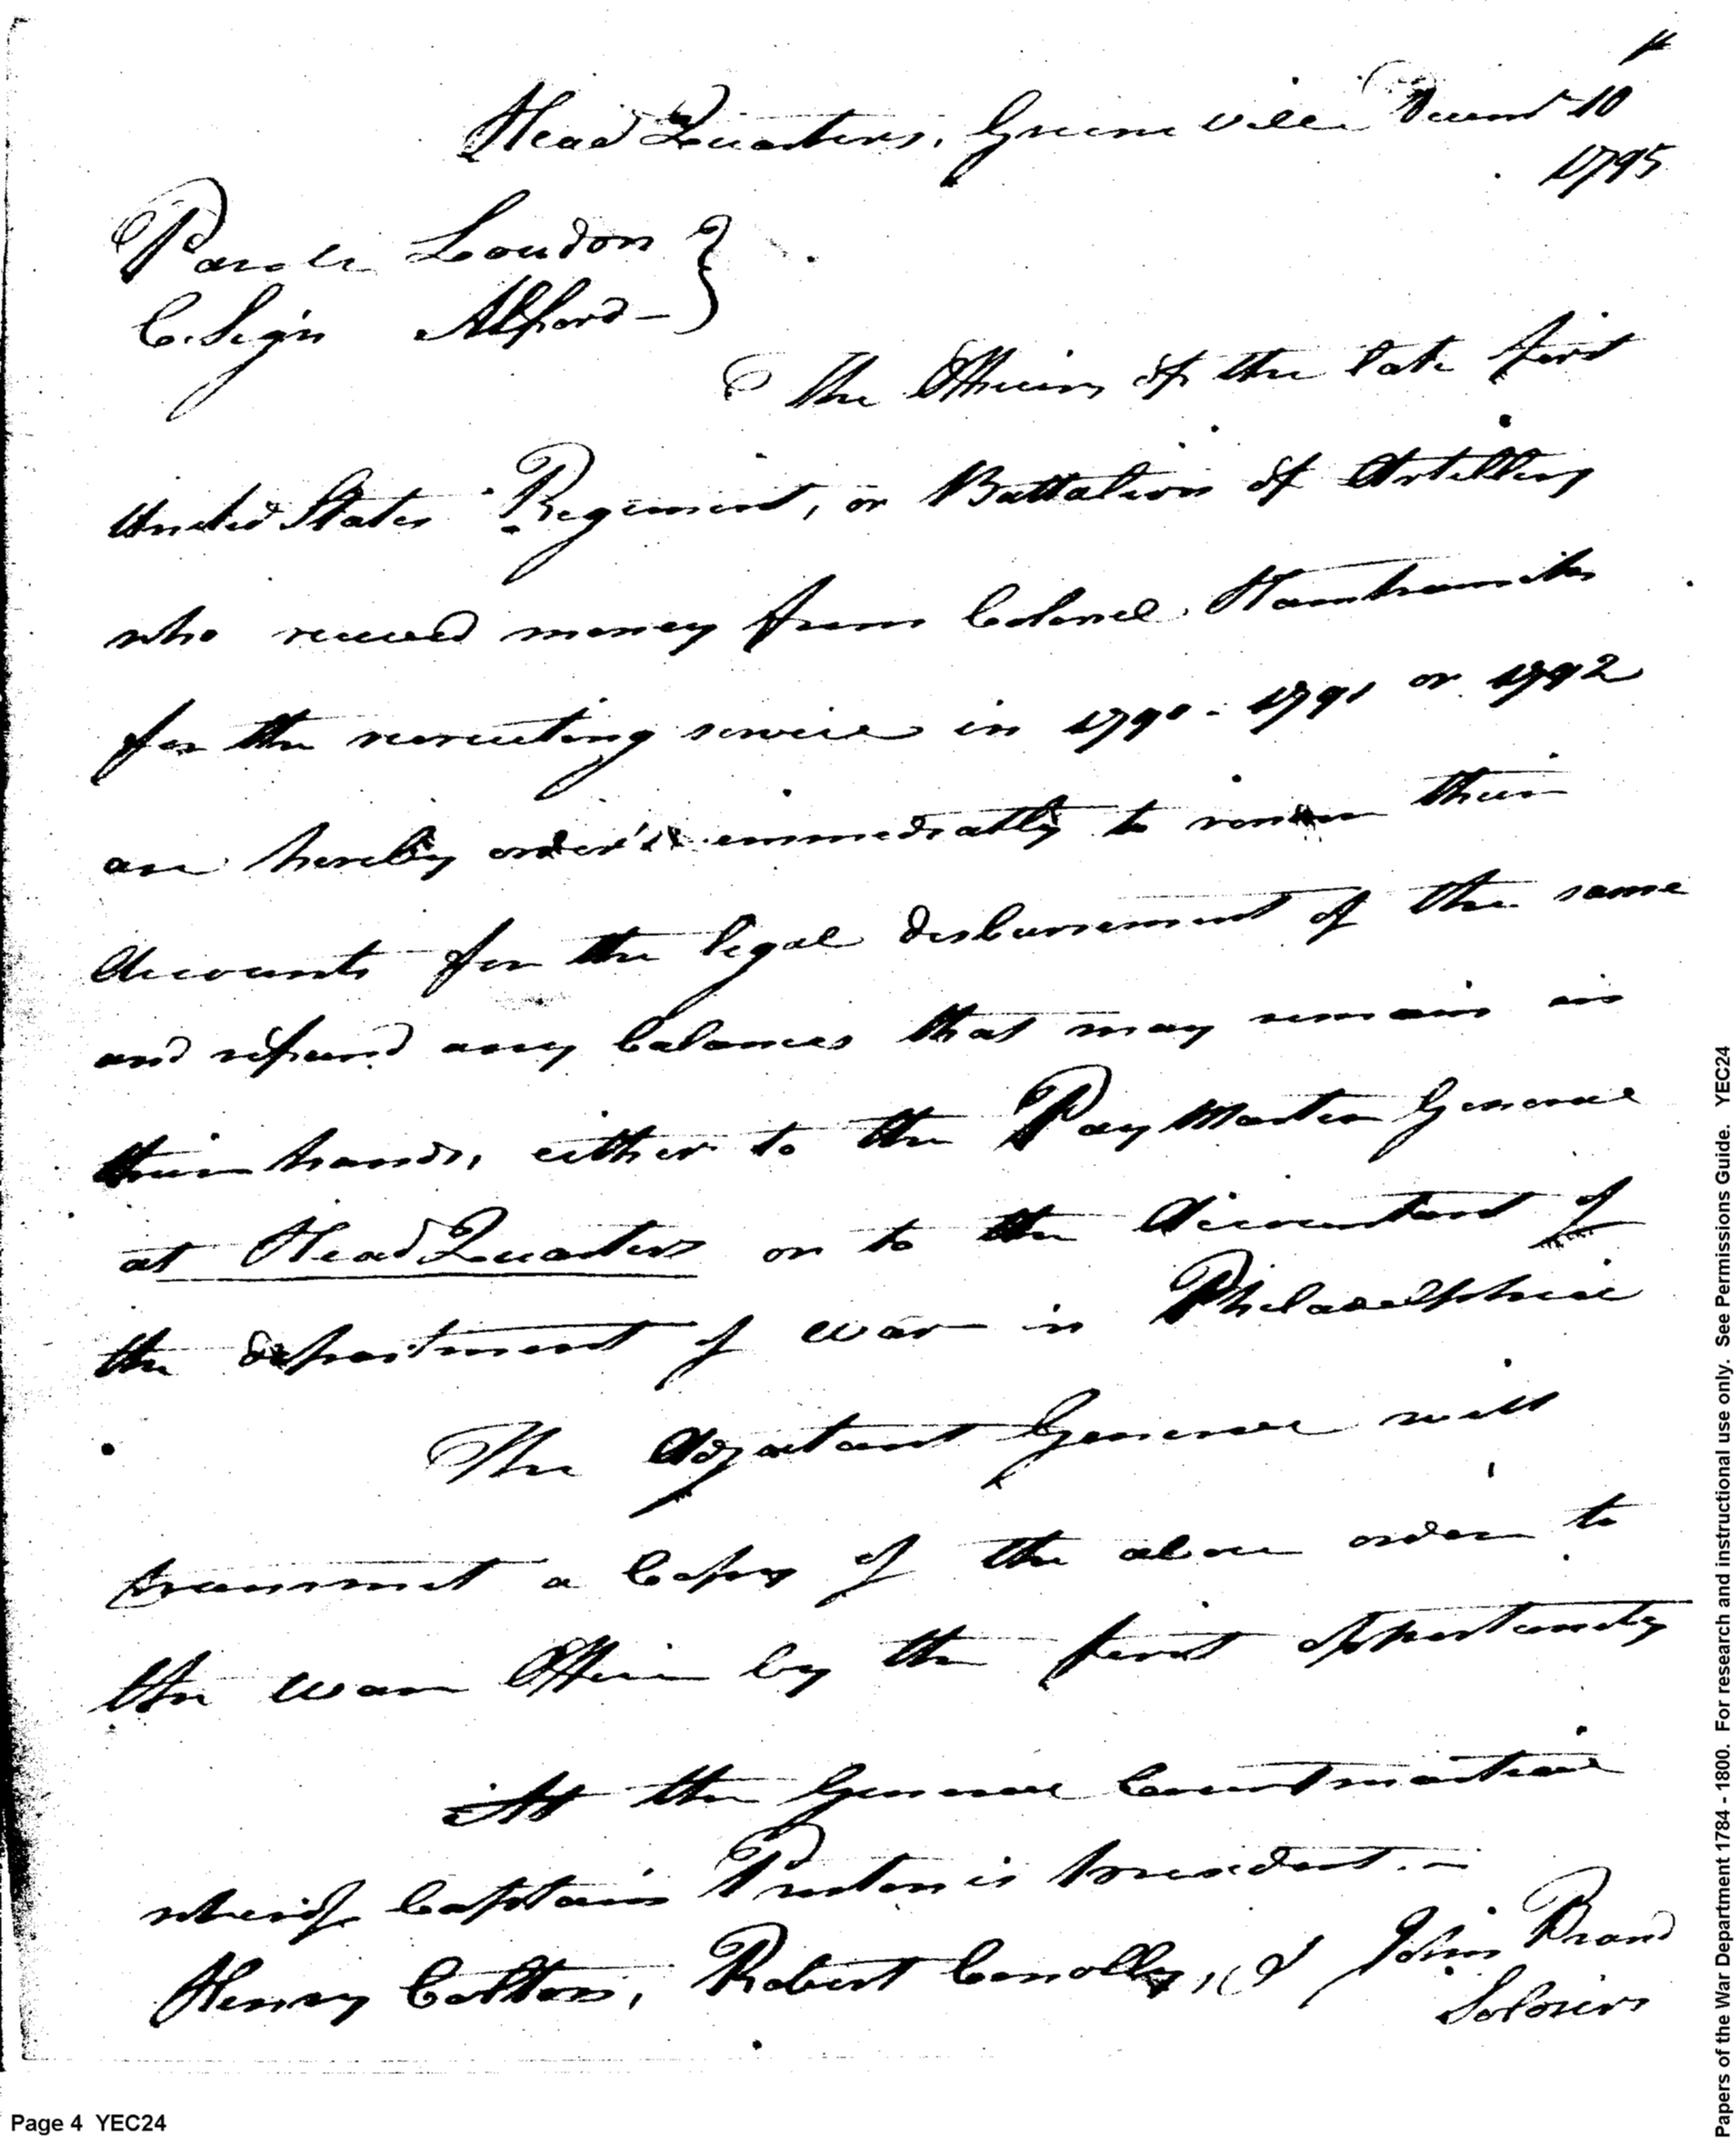 Head Quarters, Greene ville Decemr 10
1795
Parole Loudon }
C. Sign Alford — }
The Officers of the late first
United States Regiment, or Battalion of Artillery
who received money from Colonel Hamtramck
for the recruiting service in 1790 - 1791 or 1792
are hereby order'd immediatly to render their
Accounts for the legal disbursement of the same
and refund any balances that may remain in
their hands, either to the Pay Master General
at Head Quarters or to the Accountant of
the department of war in Philadelphia
The Adjutant General will
transmit a Copy of the above order to
the war Office by the first opportunity
At the General Courtmartial
whereof Captain Preston is President. —
Henry Colton, Robert Conolly, & John Brand
Soldiers
Page 4 YEC24
Papers of the War Department 1784 - 1800. For research and instructional use only. See Permissions Guide. YEC24